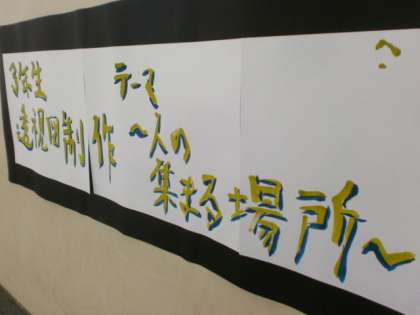 3年生
透視図制作
テーマ
～人の
集まる場所～